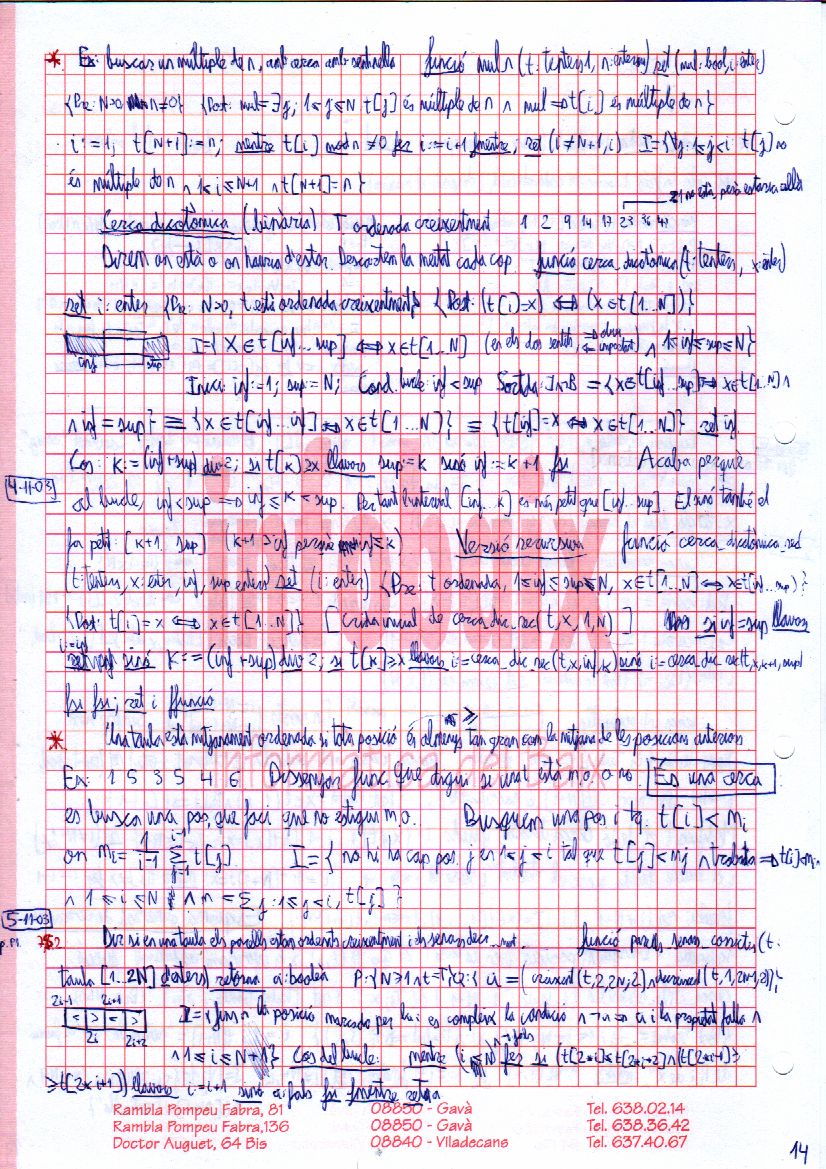 * Ex: buscar un múltiple de n, amb cerca amb sentinella funció mul n (t: tenters1, n: enters) ret (mul: bool, i: enter)
{Pre: N>0 n≠0} {Post: mul = ∃j; 1≤j≤N t[j] és múltiple de n ∧ mul ⇒ t[i] és múltiple de n}
i:=1; t[N+1]:=n; mentre t[i] mod n ≠0 fer i:=i+1 fmentre; ret (i≠N+1, i) I={∀j: 1≤j<i t[j] no
és múltiple de n ∧ 1≤i≤N+1 ∧ t[N+1]=n}
21 no està, però estaria allà
Cerca dicotòmica (binària) T ordenada creixentment 1 2 9 14 17 23 36 47
Direm on està o on hauria d'estar. Descartem la meitat cada cop funció cerca_dicotòmica (t: tenters, x: enter)
ret i: enter {Pre: N>0, t està ordenada creixentment} {Post: (t[i]=x) ⇔ (x∈t[1..N])}
inf sup I={x∈t[inf...sup] ⇔ x∈t[1..N] (en els dos sentits, ⇒ obvi ⇐ important) ∧ 1≤inf≤sup≤N}
Inici: inf:=1; sup:=N; Cond. bucle: inf<sup Sortida: I∧¬B = {x∈t[inf..sup] ⇔ x∈t[1..N] ∧
∧ inf=sup} ≡ {x∈t[inf...inf] ⇔ x∈t[1...N]} ≡ {t[inf]=x ⇔ x∈t[1..N]} ret inf
Cos: K:=(inf+sup) div 2; si t[K]≥x llavors sup:=K sinó inf:=K+1 fsi Acaba perquè
4-11-03
al bucle, inf<sup ⇒ inf≤K<sup. Per tant l'interval [inf..K] és més petit que [inf..sup]. El sinó també el
fa petit: [K+1..sup] (K+1>inf perquè inf≤K) Versió recursiva funció cerca_dicotòmica_rec
(t: tenters, x: enter, inf, sup: enters) ret (i: enter) {Pre: t ordenada, 1≤inf≤sup≤N, x∈t[1..N] ⇔ x∈t[inf..sup]}
{Post: t[i]=x ⇔ x∈t[1..N]} [Crida inicial de cerca_dic_rec(t,x,1,N)] si inf=sup llavors
i:=inf
sinó K:=(inf+sup) div 2; si t[K]≥x llavors i:=cerca_dic_rec(t,x,inf,K) sinó i:=cerca_dic_rec(t,x,K+1,sup)
fsi fsi; ret i ffunció
≥
* Una taula està mitjanament ordenada si tota posició és almenys tan gran com la mitjana de les posicions anteriors
Ex: 1 5 3 5 4 6 Dissenyar func que digui si una t està m.o. o no. És una cerca
es busca una pos. que faci que no estigui m.o. Busquem una pos i tq. t[i]<mi
on mi = 1/(i-1) Σ j=1 i-1 t[j]. I={no hi ha cap pos. j en 1≤j<i tal que t[j]<mj ∧ trobada ⇒ t[i]<mi ∧
∧ 1≤i≤N ∧ m = Σj: 1≤j<i, t[j]}
5-11-03
Dir si en una taula els parells estan ordenats creixentment i els senars decr... funció parells_senars_correctes (t:
taula [1..2N] d'enters) retorna a: booleà P:{N≥1 ∧ t=T} Q:{a = (creixent(t,2,2N,2) ∧ decreixent(t,1,2N-1,2)};
2i-1 2i+1
< > < >
2i 2i+2
I={fins a la posició marcada per la i es compleix la condició ∧ ¬a ⇒ a i la propietat falla ∧
∧ 1≤i≤N+1} Cos del bucle: mentre (i≤N) fer si (t[2*i]≤t[2*i+2] ∧ (t[2*i-1]
≥t[2*i+1])) llavors i:=i+1 sinó a:fals fsi fmentre retorna
infobaix
informàtica del baix
Rambla Pompeu Fabra, 81 08850 - Gavà Tel. 638.02.14
Rambla Pompeu Fabra,136 08850 - Gavà Tel. 638.36.42
Doctor Auguet, 64 Bis 08840 - Viladecans Tel. 637.40.67
14